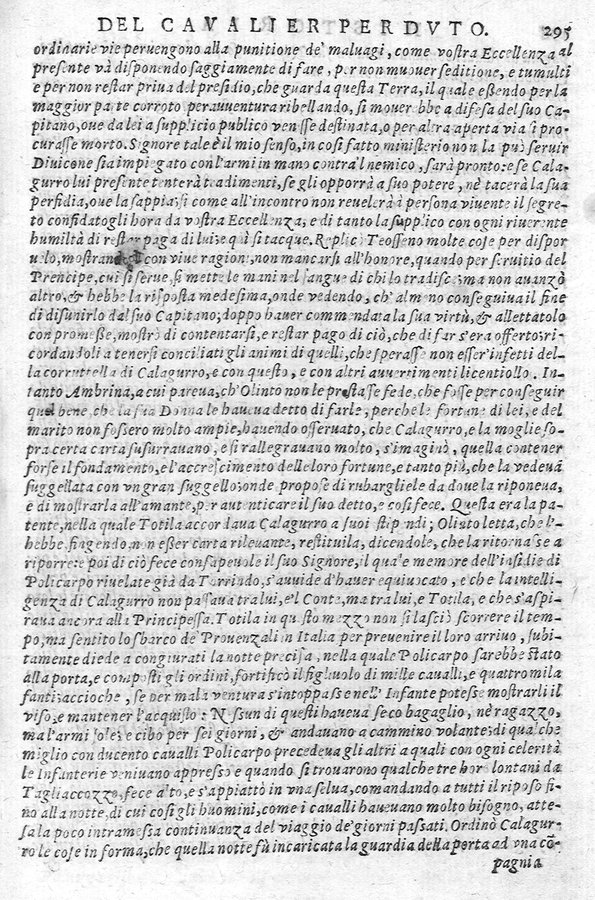 DEL CAVALIER PERDVTO. 295
ordinarie vie peruengono alla punitione de' maluagi, come vostra Eccellenza al
presente và disponendo saggiamente di fare, per non muouer seditione, e tumulti
e per non restar priua del presidio, che guarda questa Terra, il quale essendo per la
maggior parte corroto perauuentura ribellando, si mouerebbe a difesa del suo Ca-
pitano, oue da lei a supplicio publico venisse destinata, o per altra aperta via si pro-
curasse morto. Signore tale è il mio senso, in cosi fatto ministerio non la può seruir
Diuicone sia impiegato con l'armi in mano contra'l nemico, sarà pronto: e se Cala-
gurro lui presente tenterà tradimenti, se gli opporrà a suo potere, nè tacerà la sua
perfidia, oue la sappia; si come all'incontro non reuelerà à persona viuente il segre-
to confidatogli hora da vostra Eccellenza, e di tanto la supplico con ogni riuerente
humiltà di restar paga di lui: e quà si tacque. Replicò Teosseno molte cose per dispor
uelo, mostrandogli con viue ragioni, non mancarsi all'honore, quando per seruitio del
Prencipe, cui si serue, si mette le mani nel sangue di chi lo tradisce; ma non auanzò
altro, & hebbe la risposta medesima, onde vedendo, ch'almeno conseguiua il fine
di disunirlo dal suo Capitano; doppo hauer commendata la sua virtù, & allettatolo
con promesse, mostrò di contentarsi, e restar pago di ciò, che di far s'era offerto; ri-
cordandoli a tenersi conciliati gli animi di quelli, che sperasse non esser'infetti del-
la corruttela di Calagurro, e con questo, e con altri auuertimenti licentiollo. In
tanto Ambrina, a cui pareua, ch'Olinto non le prestasse fede, che fosse per conseguir
quel bene, che la sua Donna le haueua detto di farle, perche le fortune di lei, e del
marito non fossero molto ampie, hauendo osseruato, che Calagurro, e la moglie so-
pra certa carta susurrauano, e si rallegrauano molto, s'imaginò, quella contener
forse il fondamento, e l'accrescimento delle loro fortune, e tanto più, che la vedeua
suggellata con vn gran suggello; onde propose di rubargliele da doue la riponeua,
e di mostrarla all'amante, per autenticare il suo detto, e cosi fece. Questa era la pa-
tente, nella quale Totila accordaua Calagurro a suoi stipendi; Olinto letta, che l'-
hebbe, fingendo, non esser carta rileuante, restituila, dicendole, che la ritornasse a
riporre: e poi di ciò fece consapeuole il suo Signore, il quale memore dell'insidie di
Policarpo riuelate già da Terrindo, s'auuide d'hauer equiuocato, e che la intelli-
genza di Calagurro non passaua tra lui, e'l Conte, ma tra lui, e Totila, e che s'aspi-
raua ancora alla Principessa. Totila in questo mezzo non si lasciò scorrere il tem-
po, ma sentito lo sbarco de' Prouenzali in Italia per preuenire il loro arriuo, subi-
tamente diede a congiurati la notte precisa, nella quale Policarpo sarebbe stato
alla porta, e composti gli ordini, fortificò il figliuolo di mille caualli, e quattro mila
fanti; accioche, se per mala ventura s'intoppasse nell' Infante potesse mostrarli il
viso, e mantener l'acquisto: Nissun di questi haueua seco bagaglio, nè ragazzo,
ma l'armi sole; e cibo per sei giorni, & andauano a cammino volante; di qualche
miglio con ducento caualli Policarpo precedeua gli altri a quali con ogni celerità
le Infanterie veniuano appresso e quando si trouarono qualche tre hore lontani da
Tagliaccozzo, fece alto, e s'appiattò in vna selua, comandando a tutti il riposo fi-
no alla notte, di cui cosi gli huomini, come i caualli haueuano molto bisogno, atte-
sa la poco intramessa continuanza del viaggio de' giorni passati. Ordinò Calagur-
ro le cose in forma, che quella notte fù incaricata la guardia della porta ad vna cō-
pagnia